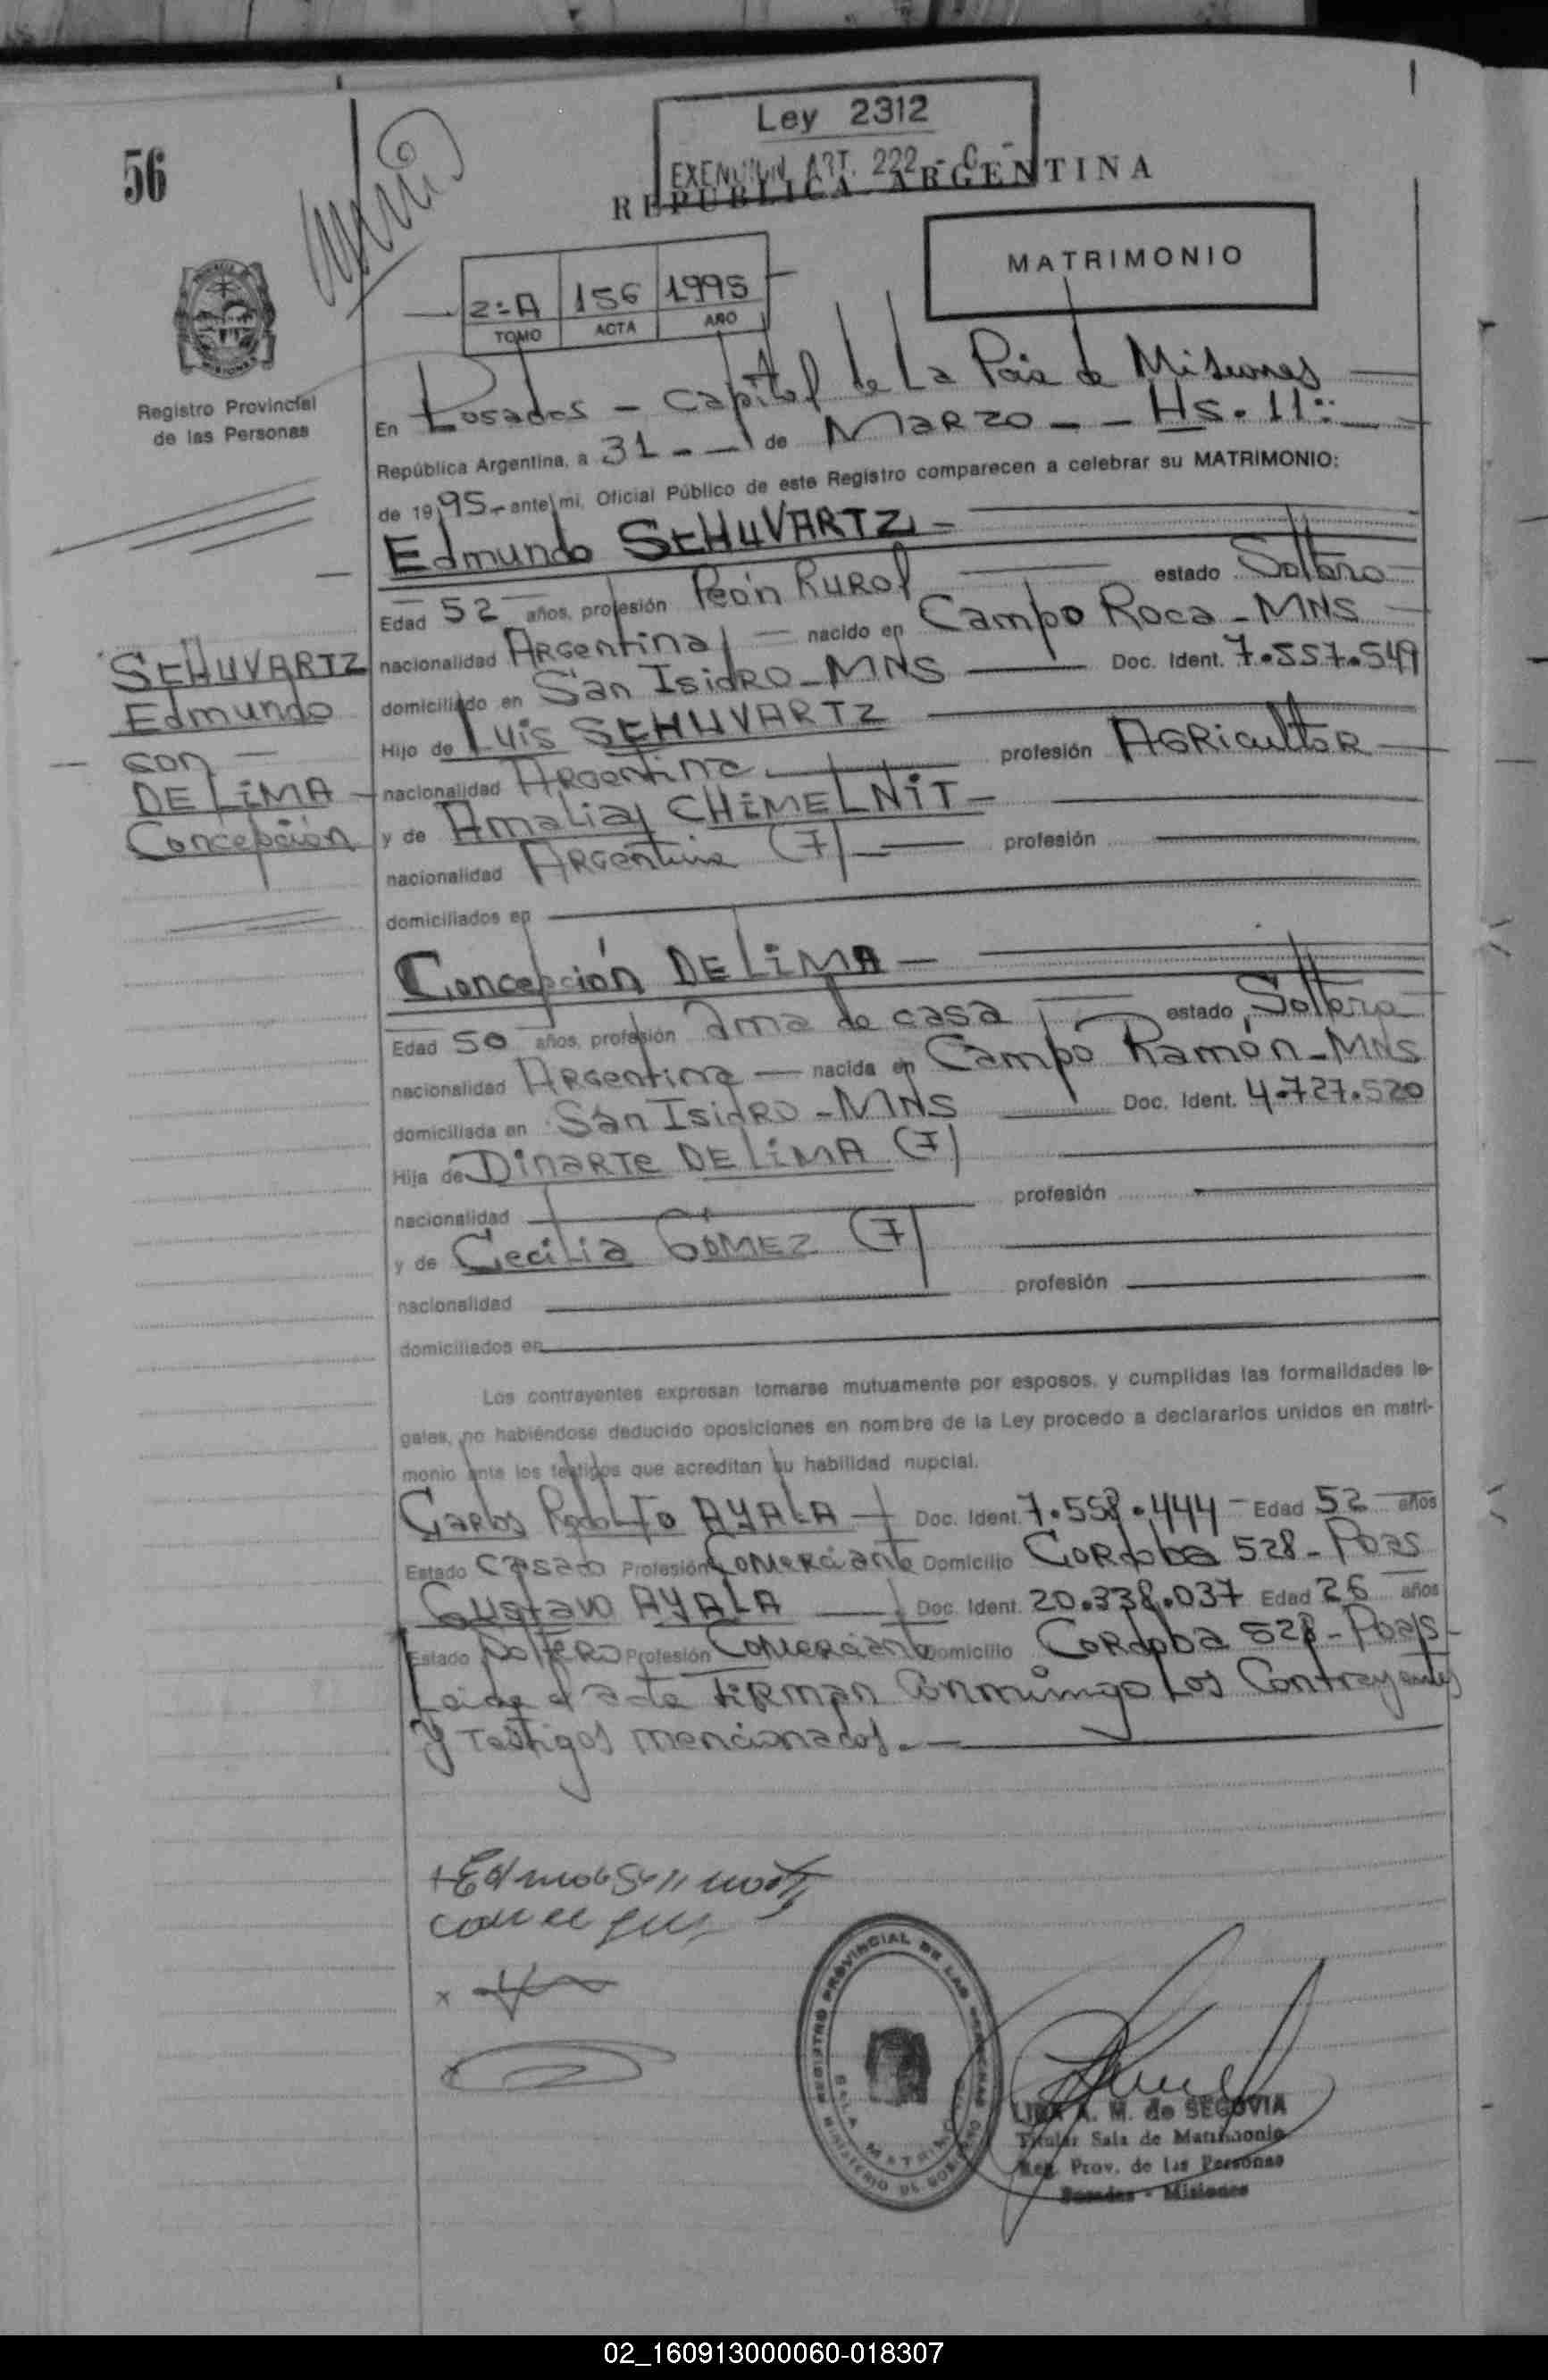 56
Ley 2312
EXENCION ART. 222 - C -
REPUBLICA ARGENTINA
MATRIMONIO
2:A 156 1995
TOMO ACTA AÑO
Registro Provincial
de las Personas
En Posadas - Capital de La Pcia de Misiones
República Argentina, a 31 - - de Marzo - - Hs. 11:
de 1995 - ante mi, Oficial Público de este Registro comparecen a celebrar su MATRIMONIO:
Edmundo SCHUVARTZ -
Edad 52 años, profesión Peón Rural estado Soltero
nacionalidad Argentina - nacido en Campo Roca - MNS
domiciliado en San Isidro - MNS Doc. Ident. 7.557.549
Hijo de Luis SCHUVARTZ
nacionalidad Argentina profesión Agricultor
y de Amalia CHIMELNIT -
nacionalidad Argentina (F) profesión
domiciliados en
SCHUVARTZ
Edmundo
con
DE LIMA
Concepción
Concepción DE LIMA -
Edad 50 años, profesión ama de casa estado Soltera
nacionalidad Argentina - nacida en Campo Ramón - MNS
domiciliada en San Isidro - MNS Doc. Ident. 4.727.520
Hija de Dinarte DE LIMA (F)
nacionalidad profesión
y de Cecilia GÓMEZ (F)
nacionalidad profesión
domiciliados en
Los contrayentes expresan tomarse mutuamente por esposos, y cumplidas las formalidades le-
gales, no habiéndose deducido oposiciones en nombre de la Ley procedo a declararlos unidos en matri-
monio ante los testigos que acreditan su habilidad nupcial.
Carlos Rodolfo AYALA Doc. Ident. 7.558.444 - Edad 52 años
Estado Casado Profesión Comerciante Domicilio Cordoba 528 - Pdas
Gustavo AYALA Doc. Ident. 20.338.037 Edad 26 años
Estado Soltero Profesión Comerciante Domicilio Cordoba 528 - Pdas
Leida el acta firman conmigo los Contrayentes
y Testigos mencionados. -
REGISTRO PROVINCIAL DE LAS PERSONAS
SALA MATRIMONIO
MINISTERIO DE GOBIERNO
LIDIA A. M. de SEGOVIA
Titular Sala de Matrimonio
Reg. Prov. de las Personas
Posadas - Misiones
02_160913000060-018307